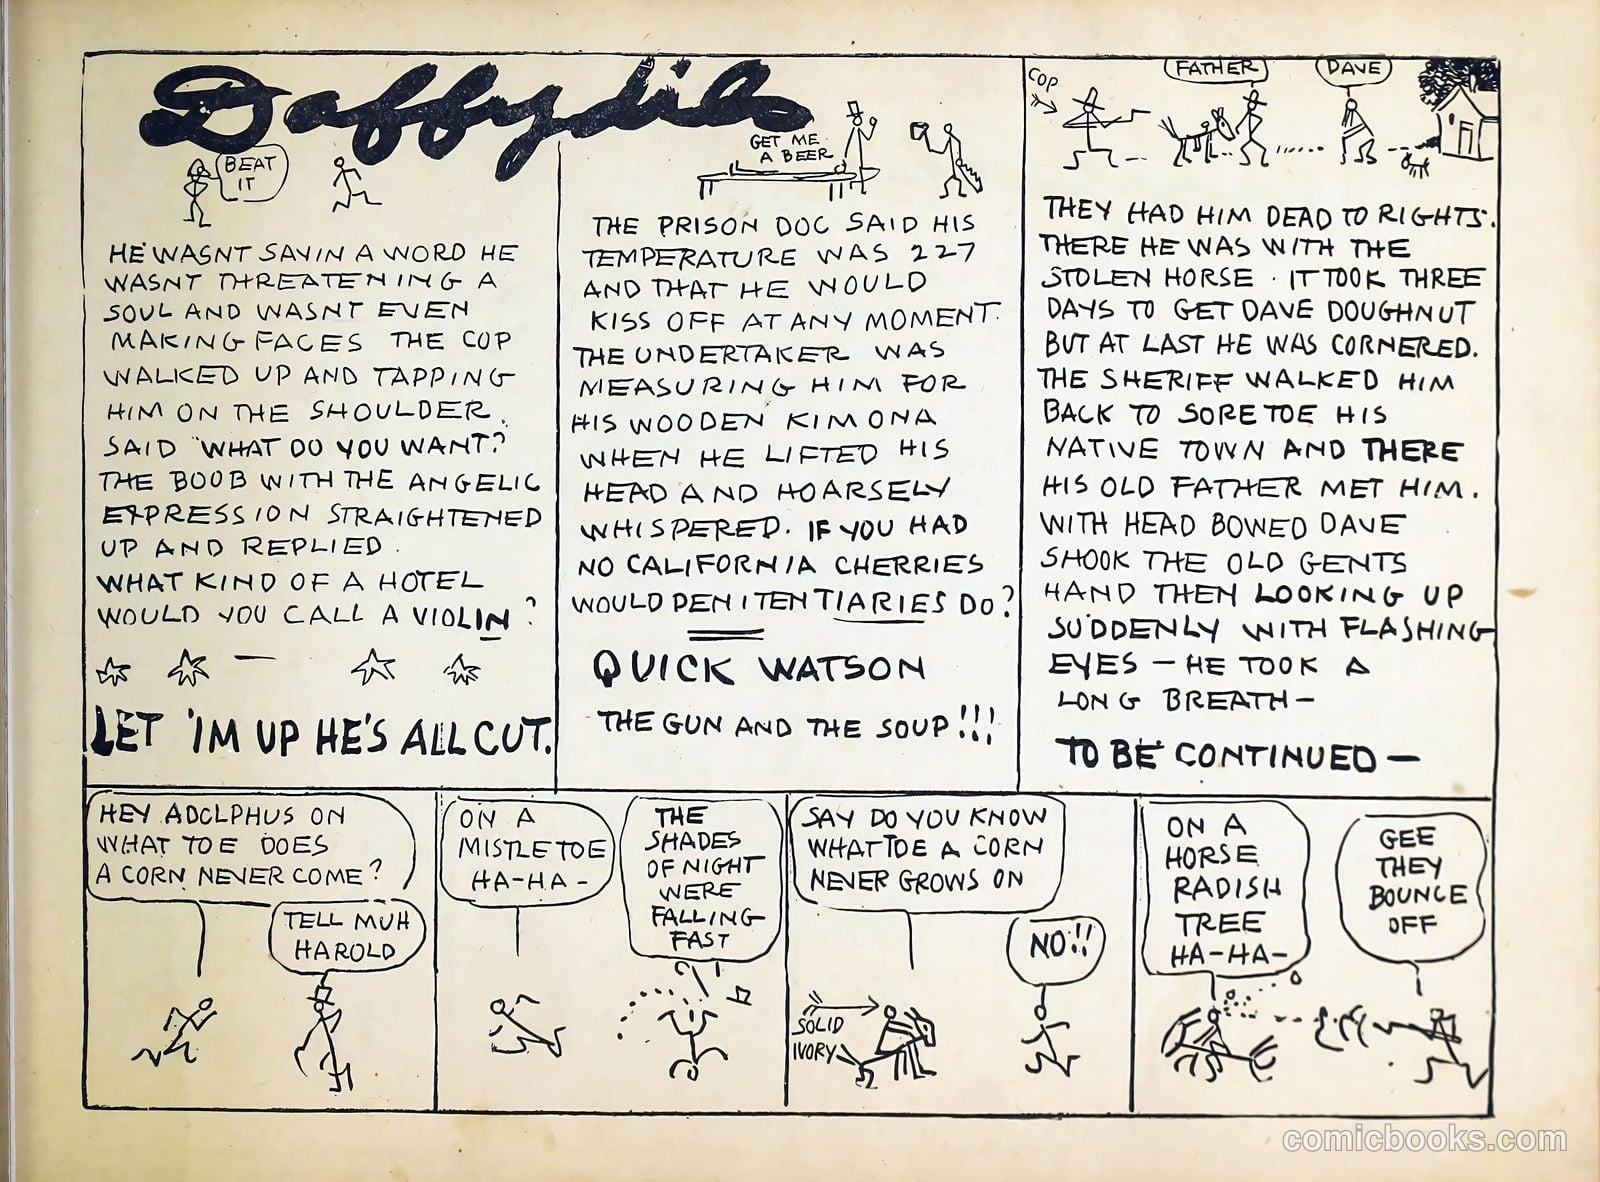 Daffydils
BEAT
IT
HE WASNT SAYIN A WORD HE
WASNT THREATENING A
SOUL AND WASNT EVEN
MAKING FACES THE COP
WALKED UP AND TAPPING
HIM ON THE SHOULDER
SAID "WHAT DO YOU WANT?
THE BOOB WITH THE ANGELIC
EXPRESSION STRAIGHTENED
UP AND REPLIED.
WHAT KIND OF A HOTEL
WOULD YOU CALL A VIOLIN?
LET 'IM UP HE'S ALL CUT.
GET ME
A BEER
THE PRISON DOC SAID HIS
TEMPERATURE WAS 227
AND THAT HE WOULD
KISS OFF AT ANY MOMENT.
THE UNDERTAKER WAS
MEASURING HIM FOR
HIS WOODEN KIMONA
WHEN HE LIFTED HIS
HEAD AND HOARSELY
WHISPERED. IF YOU HAD
NO CALIFORNIA CHERRIES
WOULD PENITENTIARIES DO?
QUICK WATSON
THE GUN AND THE SOUP!!!
COP
FATHER
DAVE
THEY HAD HIM DEAD TO RIGHTS.
THERE HE WAS WITH THE
STOLEN HORSE. IT TOOK THREE
DAYS TO GET DAVE DOUGHNUT
BUT AT LAST HE WAS CORNERED.
THE SHERIFF WALKED HIM
BACK TO SORETOE HIS
NATIVE TOWN AND THERE
HIS OLD FATHER MET HIM.
WITH HEAD BOWED DAVE
SHOOK THE OLD GENTS
HAND THEN LOOKING UP
SUDDENLY WITH FLASHING
EYES — HE TOOK A
LONG BREATH —
TO BE CONTINUED —
HEY ADOLPHUS ON
WHAT TOE DOES
A CORN NEVER COME?
TELL MUH
HAROLD
ON A
MISTLETOE
HA-HA-
THE
SHADES
OF NIGHT
WERE
FALLING
FAST
SAY DO YOU KNOW
WHAT TOE A CORN
NEVER GROWS ON
SOLID
IVORY
NO!!
ON A
HORSE
RADISH
TREE
HA-HA-
GEE
THEY
BOUNCE
OFF
comicbooks.com